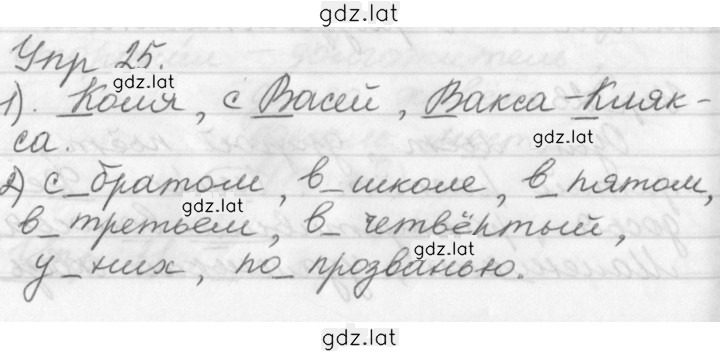 gdz.lat
Упр 25.
gdz.lat
1). Коля, с Васей, Вакса-Кляк-
gdz.lat
са.
2) с_братом, в_школе, в_пятом,
gdz.lat
в_третьем, в_четвёртый,
gdz.lat
у_них, по_прозванью.
gdz.lat